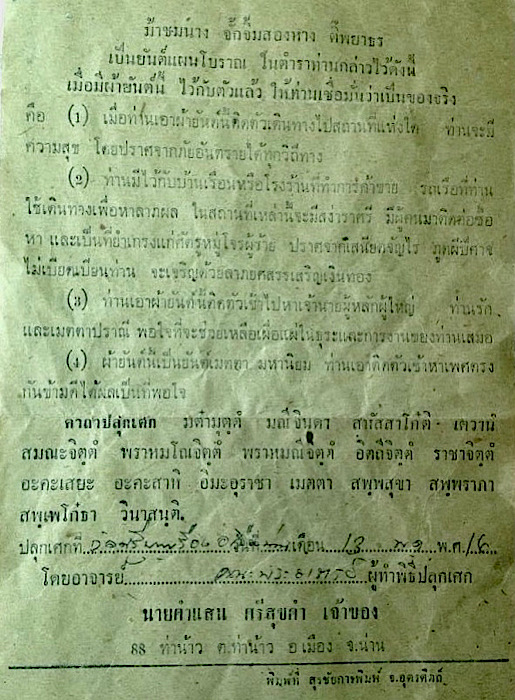 ม้าชมนาง จิ้กจิ้มสองหาง ตัพยาธร
เป็นยันต์แผนโบราณ ในตำราท่านกล่าวไว้ดังนี้
เมื่อมีผ้ายันต์นี้ ไว้กับตัวแล้ว ให้ท่านเชื่อมั่นว่าเป็นของจริง
คือ (1) เมื่อท่านเอาผ้ายันต์นี้ติดตัวเดินทางไปสถานที่แห่งใด ท่านจะมี
ความสุข โดยปราศจากภัยอันตรายได้ทุกวิถีทาง
(2) ท่านมีไว้กับบ้านเรือนหรือโรงร้านที่ทำการค้าขาย รถเรือที่ท่าน
ใช้เดินทางเพื่อหาลาภผล ในสถานที่เหล่านี้จะมีสง่าราศรี มีผู้คนมาติดต่อซื้อ
หา และเป็นที่ยำเกรงแก่ศัตรูหมู่โจรผู้ร้าย ปราศจากเสนียดจัญไร ภูตผีปีศาจ
ไม่เบียดเบียนท่าน จะเจริญด้วยลาภยศสรรเสริญเงินทอง
(3) ท่านเอาผ้ายันต์นี้ติดตัวเข้าไปหาเจ้านายผู้หลักผู้ใหญ่ ท่านรัก
และเมตตาปราณี พอใจที่จะช่วยเหลือเผื่อแผ่ในธุระและการงานของท่านเสมอ
(4) ผ้ายันต์นี้เป็นยันต์เมตตา มหานิยม ท่านเอาติดตัวเข้าหาเพศตรง
กันข้ามก็ได้ผลเป็นที่พอใจ
คาถาปลุกเศก มต๋ามุตฺตํ มณีจินดา สหัสสาโกํติ เทวานํ
สมณะจิตฺตํ พราหมโณจิตฺตํ พราหมณีจิตฺตํ อิตถีจิตฺตํ ราชาจิตฺตํ
อะคะเสยยะ อะคะสาที อิมะอุราชา เมตตา สพฺพสุขา สพฺพราภา
สพฺเพโกํธา วินาสนฺติ.
ปลุกเศกที่ วันที่ เดือน 13 พ.ศ. 16
โดยอาจารย์ ผู้ทำพิธีปลุกเศก
นายคำแสน ศรีสุขคำ เจ้าของ
88 ท่าน้าว ต.ท่าน้าว อ.เมือง จ.น่าน
พิมพ์ที่ สุรชัยการพิมพ์ จ.อุตรดิตถ์